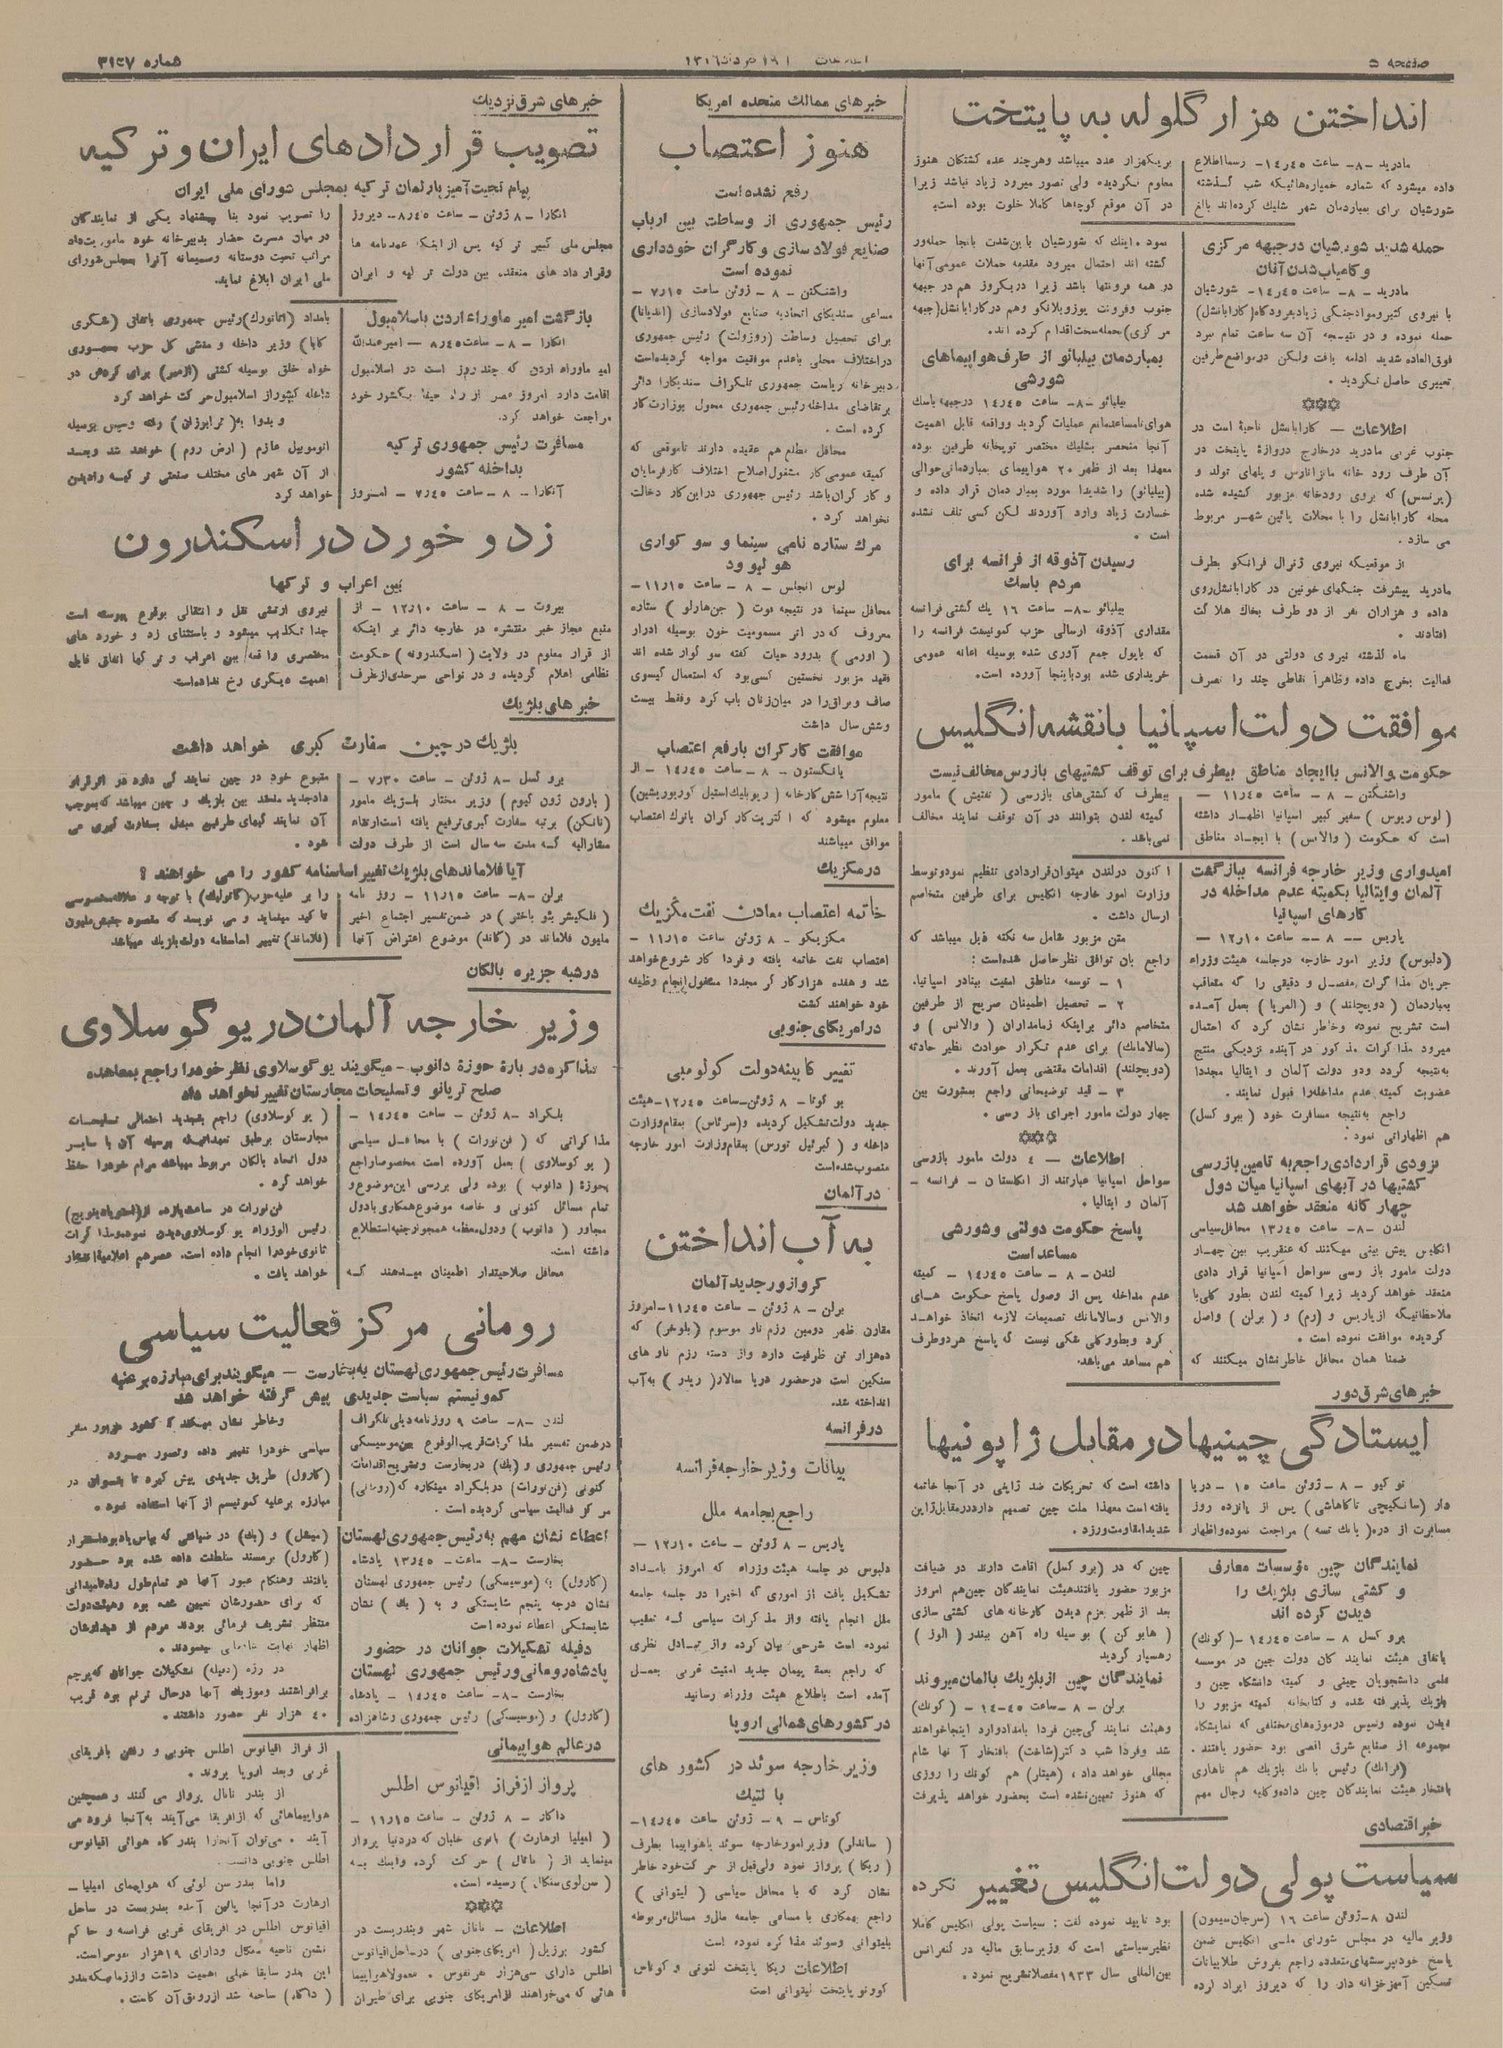 صفحه ۵
اطلاعات
شماره ۳۱۲۷
انداختن هزار گلوله به پایتخت
مادرید -۸- ساعت ۱۴٫۴۵- رسما اطلاع
داده میشود که شماره خمپاره‌هائیکه شب گذشته
شورشیان برای بمباردمان شهر شلیک کرده‌اند بالغ
بریکهزار عدد میباشد وهرچند عده کشتگان هنوز
معلوم نگردیده ولی تصور میرود زیاد نباشد زیرا
در آن موقع کوچه‌ها کاملا خلوت بوده است.
حمله شدید شورشیان درجبهه مرکزی
و کامیاب شدن آنان
مادرید -۸- ساعت ۱۴٫۴۵- شورشیان
حمله نموده و در نتیجه آن سه ساعت تمام نبرد
فوق‌العاده شدید ادامه یافت ولیکن در مواضع طرفین
تغییری حاصل نگردید .
اطلاعات — کارابانشل ناحیهٔ است در
جنوب غربی مادرید درخارج دروازهٔ پایتخت در
آن طرف رود خانه مانزانارس و پلهای تولد و
(پرنسس) که بروی رودخانه مزبور کشیده شده
محله کارابانشل را با محلات پائین شهر مربوط
می سازد .
از موقعیکه نیروی ژنرال فرانکو بطرف
مادرید پیشرفت جنگهای خونین در کارابانشل روی
داده و هزاران نفر از دو طرف بخاک هلاکت
افتادند .
ماه گذشته نیروی دولتی در آن قسمت
فعالیت بخرج داده وظاهراً نقاطی چند را تصرف
نمود . اینک که شورشیان باین شدت بانجا حمله‌ور
گشته اند احتمال میرود مقدمه حملات عمومی آنها
در همه فرونتها باشد زیرا دیکروز هم در جبهه
جنوب وفرونت پوزوبلانکو وهم در کارابانشل(جبهه
مرکزی)حمله سخت اقدام کرده اند.
بمباردمان بیلبائو از طرف هواپیماهای
شورشی
بیلبائو -۸- ساعت ۱۴٫۴۵ درجبهه باسک
هوای نامساعد مانع عملیات گردید وواقعه قابل اهمیت
آنجا منحصر بشلیک مختصر توپخانه طرفین بوده
معهذا بعد از ظهر ۲۰ هواپیمای بمباردمانی حوالی
(بیلبائو) را شدیدا مورد بمباردمان قرار داده و
خسارت زیاد وارد آوردند لکن کسی تلف نشده
است .
رسیدن آذوقه از فرانسه برای
مردم باسک
بیلبائو -۸- ساعت ۱۶ یک کشتی فرانسه
مقداری آذوقه ارسالی حزب کمونیست فرانسه را
که باپول جمع آوری شده بوسیله اعانه عمومی
خریداری شده بود باینجا آورده است.
موافقت دولت اسپانیا با نقشه انگلیس
حکومت والانس با ایجاد مناطق بیطرف برای توقف کشتیهای بازرس مخالف نیست
واشنگتن - ۸ - ساعت ۱۱٫۴۵ —
(لوس ریوس ) سفیر کبیر اسپانیا اظهار داشته
است که حکومت (والانس ) با ایجاد مناطق
بیطرف که کشتی‌های بازرسی ( تفتیش ) مامور
کمیته لندن بتوانند در آن توقف نمایند مخالف
نمی‌باشد .
امیدواری وزیر خارجه فرانسه ببازگشت
آلمان وایتالیا بکمیته عدم مداخله در
کارهای اسپانیا
پاریس -- ۸ -- ساعت ۱۲٫۱۰ —
(دلبوس) وزیر امور خارجه درجلسه هیئت وزراء
جریان مذاکرات مفصل و دقیقی را که متعاقب
بمباردمان (دویچلند) و (المریا) بعمل آمده
است تشریح نموده وخاطر نشان کرد که احتمال
میرود مذاکرات مذکور در آینده نزدیکی منتج
به‌نتیجه گردد ودو دولت آلمان و ایتالیا مجددا
عضویت کمیته عدم مداخله‌را قبول نمایند.
راجع به‌نتیجه مسافرت خود (ببرو کسل)
هم اظهاراتی نمود .
بزودی قراردادی راجع به تامین بازرسی
کشتیها در آبهای اسپانیا میان دول
چهار گانه منعقد خواهد شد
لندن -۸- ساعت ۱۳٫۴۵ محافل سیاسی
انگلیس پیش بینی میکنند که عنقریب بین چهار
دولت مامور باز رسی سواحل اسپانیا قرار دادی
منعقد خواهد گردید زیرا کمیته لندن بطور کلی با
ملاحظاتیکه ازپاریس و (رم) و ( برلن ) واصل
گردیده موافقت نموده است .
ضمنا همان محافل خاطرنشان میکنند که
اکنون درلندن میتوان قراردادی تنظیم نمودوتوسط
وزارت امور خارجه انگلیس برای طرفین متخاصم
ارسال داشت .
متن مزبور شامل سه نکته ذیل میباشد که
راجع بان توافق نظر حاصل شده‌است :
۱ – توسعه مناطق امنیت ببنادر اسپانیا.
۲ – تحصیل اطمینان صریح از طرفین
متخاصم دائر براینکه زمامداران ( والانس ) و
(سالامانک) برای عدم تکرار حوادث نظیر حادثه
(دویچلند) اقدامات مقتضی بعمل آورند .
۳ – قید توضیحاتی راجع بمشورت بین
چهار دولت مامور اجرای باز رسی .
اطلاعات — ٤ دولت مامور بازرسی
سواحل اسپانیا عبارتند از انگلستان - فرانسه -
آلمان و ایتالیا .
پاسخ حکومت دولتی و شورشی
مساعد است
لندن - ۸ - ساعت ۱۴٫۴۵ - کمیته
عدم مداخله پس از وصول پاسخ حکومت های
والانس وسالامانک تصمیمات لازمه اتخاذ خواهد
کرد وبطور کلی شکی نیست که پاسخ هردوطرف
هم مساعد می‌باشد.
خبرهای شرق دور
ایستادگی چینیها در مقابل ژاپونیها
تو کیو - ۸ - ژوئن ساعت ۱۵ - دریا
دار (سانکیچی تاکاهاشی) پس از پانزده روز
مسافرت از دره( یانک تسه ) مراجعت نموده و اظهار
داشته است که تحریکات ضد ژاپنی در آنجا خاتمه
یافته است معهذا ملت چین تصمیم دارد در مقابل ژاپن
شدیدا مقاومت ورزد .
نمایندگان چین مؤسسات معارف
و کشتی سازی بلژیک را
دیدن کرده اند
برو کسل ۸ - ساعت ۱۴٫۴۵ -( کونک)
باتفاق هیئت نمایندگان دولت چین در موسسه
علمی دانشجویان چینی و کمیته دانشگاه چین و
بلژیک پذیرفته شده و کتابخانه کمیته مزبور را
دیدن نموده وسپس درموزه‌های مختلفی که نمایشگاه
مجموعه از صنایع شرق اقصی بود حضور یافتند.
(فرانک) رئیس بانک بلژیک هم ناهاری
بافتخار هیئت نمایندگان چین داده وکلیه رجال مهم
چین که در (برو کسل) اقامت دارند در ضیافت
مزبور حضور یافتندهیئت نمایندگان چین هم امروز
بعد از ظهر بعزم دیدن کارخانه های کشتی سازی
( هابو کن ) بوسیله راه آهن ببندر ( الوز )
رهسپار گردید
نمایندگان چین از بلژیک بالمان میروند
برلن - ۸ - ساعت ۱۴٫۴۵ - ( کونک)
وهیئت نمایندگی چین فردا بامداد وارد اینجا خواهند
شد وفردا شب دکتر(شاخت) بافتخار آنها شام
مجللی خواهد داد ، (هیتلر) هم کونک را روزی
که هنوز تعیین نشده است بحضور خواهد پذیرفت
خبر اقتصادی
سیاست پولی دولت انگلیس تغییر نکرده
لندن ۸-ژوئن ساعت ۱۶ (سرجان‌سیمون)
وزیر مالیه در مجلس شورای ملی انگلیس ضمن
پاسخ خودبپرسشهای‌متعدده راجع بفروش طلابیانات
تسکین آمیزخزانه دار را که دیروز ایراد کرده
بود تایید نموده گفت : سیاست پولی انگلیس کاملا
نظیرسیاستی است که وزیرسابق مالیه در کنفرانس
بین‌المللی سال ۱۹۳۳مفصلاتشریح نمود .
خبرهای ممالک متحده امریکا
هنوز اعتصاب
رفع نشده است
رئیس جمهوری از وساطت بین ارباب
صنایع فولاد سازی و کارگران خودداری
نموده است
واشنگتن - ۸ - ژوئن ساعت ۷٫۱۵ —
مساعی سندیکای اتحادیه صنایع فولادسازی (اندیانا)
برای تحصیل وساطت (روزولت) رئیس جمهوری
دراختلاف محلی باعدم موفقیت مواجه گردیده‌است
دبیرخانه ریاست جمهوری تلگراف سندیکارا دائر
برتقاضای مداخله رئیس جمهوری محول بوزارت کار
کرده است .
محافل مطلع هم عقیده دارند تاموقعی که
کمیته عمومی کار مشغول اصلاح اختلاف کارفرمایان
و کارگران باشد رئیس جمهوری دراین کار دخالت
نخواهد کرد .
مرگ ستاره نامی سینما و سو گواری
هو لیو ود
لوس انجلس - ۸ - ساعت ۱۱٫۱۵—
محافل سینما در نتیجه موت ( جن‌هارلو ) ستاره
معروف که در اثر مسمومیت خون بوسیله ادرار
( اورمی ) بدرود حیات گفته سو گوار شده اند
فقید مزبور نخستین کسی‌بود که استعمال گیسوی
صاف وبراق‌را در میان‌زنان باب کرد وفقط بیست
وشش سال داشت
موافقت کارگران بارفع اعتصاب
یانگستون - ۸ - ساعت ۱۴٫۴۵ - از
نتیجه‌آراء شش کارخانه ( ریوبلیک استیل کورپوریشین)
معلوم میشود که اکثریت کار گران باترک اعتصاب
موافق میباشند
درمکزیک
خاتمه اعتصاب معادن نفت مکزیک
مکزیکو - ۸ ژوئن ساعت ۱۱٫۱۵ —
اعتصاب نفت خاتمه یافته و فردا کار شروع خواهد
شد و هفده هزار کار گر مجددا مشغول انجام وظیفه
خود خواهند گشت
درامریکای جنوبی
تغییر کابینه دولت کولومبی
بو کوتا- ۸ ژوئن-ساعت ۱۲٫۴۵-هیئت
جدید دولت‌تشکیل گردیده و(سرتاس) بمقام‌وزارت
داخله و ( گبرئیل تورس) بمقام‌وزارت امور خارجه
منصوب شده است
در آلمان
به آب انداختن
کروازور جدید آلمان
برلن - ۸ ژوئن - ساعت ۱۱٫۴۵-امروز
مقارن ظهر دومین رزم ناو موسوم (بلوخر) که
ده‌هزار تن ظرفیت دارد واز دسته رزم ناو های
سنگین است درحضور دریا سالار( ریدر ) به‌آب
انداخته شد.
درفرانسه
بیانات وزیر خارجه فرانسه
راجع بجامعه ملل
پاریس - ۸ ژوئن - ساعت ۱۲٫۱۰ —
دلبوس در جلسه هیئت وزراء که امروز بامداد
تشکیل یافت از اموری که اخیرا در جلسه جامعه
ملل انجام یافته واز مذکرات سیاسی که تعقیب
نموده است شرحی بیان کرده واز تبادل نظری
که راجع بعقد پیمان جدید امنیت غربی بعمل
آمده است باطلاع هیئت وزراء رسانید
در کشورهای شمالی اروپا
وزیر خارجه سوئد در کشور های
بالتیک
کوناس - ۹ - ژوئن ساعت ۱۴٫۴۵-
( ساندلر) وزیرامورخارجه سوئد باهواپیما بطرف
( ریکا ) پرواز نمود ولی‌قبل از حرکت خود خاطر
نشان کرد که با محافل سیاسی ( لیتوانی )
راجع بهمکاری با مساعی جامعه مالی و مسائل مربوطه
بلیتوانی وسوئد مذاکره نموده است
اطلاعات ریکا پایتخت لتونی و کوناس
کوونو پایتخت لیتوانی است
خبرهای شرق نزدیک
تصویب قراردادهای ایران و ترکیه
پیام تحیت آمیز پارلمان ترکیه بمجلس شورای ملی ایران
انکارا - ۸ ژوئن - ساعت ۸٫۴۵ - دیروز
مجلس ملی کبیر ترکیه پس از اینکه عهدنامه ها
وقرار داد های منعقده بین دولت ترکیه و ایران
را تصویب نمود بنا پیشنهاد یکی از نمایندگان
در میان مسرت حضار بدبیرخانه خود ماموریت‌داد
مراتب تحیت دوستانه وصمیمانه آنرا بمجلس شورای
ملی ایران ابلاغ نماید.
بازگشت امیر ماوراء اردن باسلامبول
انکارا - ۸ - ساعت ۸٫۴۵ - امیرعبدالله
امیر ماوراء اردن که چند روز است در اسلامبول
اقامت دارد امروز عصر از راه حیفا بکشور خود
مراجعت خواهد کرد.
مسافرت رئیس جمهوری ترکیه
بداخله کشور
آنکارا - ۸ - ساعت ۷٫۴۵ - امروز
بامداد (اتاتورک)رئیس جمهوری باتفاق (شکری
کایا ) وزیر داخله و منشی کل حزب جمهوری
خواه خلق بوسیله کشتی (ازمیر) برای گردش در
داخله کشور از اسلامبول حرکت خواهد کرد
و بدوا به( ترابوزان ) رفته وسپس بوسیله
اتوموبیل عازم ( ارض روم ) خواهد شد وبعد
از آن شهر های مختلف صنعتی ترکیه را دیدن
خواهد کرد
زد و خورد در اسکندرون
بین اعراب و ترکها
بیروت - ۸ - ساعت ۱۲٫۱۰ - از
منبع مجاز خبر منتشره در خارجه دائر بر اینکه
از قرار معلوم در ولایت ( اسکندرونه ) حکومت
نظامی اعلام گردیده و در نواحی سرحدی ازطرف
نیروی ارتشی نقل و انتقالی بوقوع پیوسته است
جدا تکذیب میشود و باستثنای زد و خورد های
مختصری واقعه بین اعراب و ترکها اتفاق قابل
اهمیت دیگری رخ نداده‌است
خبرهای بلژیک
بلژیک در چین سفارت کبری خواهد داشت
برو کسل -۸ ژوئن - ساعت ۷٫۳۰ -
( بارون ژون گیوم ) وزیر مختار بلژیک مامور
(نانکن) برتبه سفارت کبری ترفیع یافته است ارتقاء
مشارالیه که مدت سه سال است از طرف دولت
متبوع خود در چین نمایندگی دارد در اثر قرار
دادجدید منعقده بین بلژیک و چین میباشد که‌بموجب
آن نمایندگیهای طرفین مبدل بسفارت کبری می
شود .
آیا فلاماندهای بلژیک تغییر اساسنامه کشور را می خواهند ؟
برلن -۸- ساعت ۱۱٫۱۵ - روز نامه
(فلکیشر بئو باختر ) در ضمن تفسیر اجتماع اخیر
ملیون فلاماند در (گاند) موضوع اعتراض آنها
را بر علیه حزب(کاتولیک) با توجه و علاقه مخصوصی
تا کید مینماید و می نویسد که مقصود جنبش ملیون
(فلاماند) تغییر اساسنامه دولت بلژیک میباشد
درشبه جزیره بالکان
وزیر خارجه آلمان در یوگوسلاوی
مذاکره در بارهٔ حوزهٔ دانوب - میگویند یوگوسلاوی نظر خود را راجع بمعاهده
صلح تریانو و تسلیحات مجارستان تغییر نخواهد داد
بلگراد -۸ ژوئن - ساعت ۱۴٫۴۵ -
مذاکراتی که ( فن نورات ) با محافل سیاسی
( یو کوسلاوی ) بعمل آورده است مخصوصاراجع
بحوزهٔ ( دانوب ) بوده ولی بررسی این موضوع و
تمام مسائل کنونی و خاصه موضوع همکاری بادول
مجاور ( دانوب ) ودول معظمه همجوار جنبه استطلاع
داشته است.
محافل صلاحیتدار اطمینان میدهند که
( یو کوسلاوی) راجع بتجدید احتمالی تسلیحات
مجارستان برطبق تعهداتیکه بوسیله آن با سایر
دول اتحاد بالکان مربوط میباشد مرام خودرا حفظ
خواهد کرد .
رئیس الوزراء یو کوسلاوی‌دیدن نموده‌ومذاکرات
ثانوی‌خودرا انجام داده است. عصرهم اعلامیهٔ‌انتشار
خواهد یافت .
رومانی مرکز فعالیت سیاسی
مسافرت رئیس جمهوری لهستان به بخارست – میگویند برای مبارزه برعلیه
کمونیستم سیاست جدیدی پیش گرفته خواهد شد
لندن -۸- ساعت ۹ روزنامه دیلی تلگراف
درضمن تفسیر مذاکرات قریب‌الوقوع بین‌موسیسکی
رئیس جمهوری و (بک) در بخارست وتشریح اقدامات
کنونی (فن‌نورات) در بلگراد مینگارد که(رومانی)
مرکز فعالیت سیاسی گردیده است .
وخاطر نشان میکند که کشور مزبور سفر
سیاسی خودرا تغییر داده وتصور میرود
(کارول) طریق جدیدی پیش گیرد تا بتوان در
مبارزه برعلیه کمونیسم از آنها استفاده نمود .
اعطاء نشان مهم به رئیس جمهوری لهستان
بخارست -۸- ساعت- ۱۳٫۴۵ پادشاه
(کارول) به (موسیسکی) رئیس جمهوری لهستان
نشان درجه پنجم شایستگی و به ( بک ) نشان
شایستگی اعطاء نموده است
دفیله تشکیلات جوانان در حضور
پادشاه رومانی و رئیس جمهوری لهستان
بخارست -۸- ساعت ۱۴٫۴۵ - پادشاه
(کارول) و (موسیسکی) رئیس جمهوری وشاهزاده
(میشل) و (بک) در ضیافتی که بپاس یادبوداستقرار
(کارول) برمسند سلطنت داده شده بود حضور
یافتند وهنگام عبور آنها در تمام طول راه‌نامیدانی
که برای حضورشان تعیین شده بود وهیئت‌دولت
منتظر تشریف فرمائی بودند مردم از دیدارشان
اظهار نهایت شادمانی مینمودند.
در رژه (دفیله) تشکیلات جوانان که‌پرچم
برافراشتند وموزیک آنها درحال ترنم بود قریب
۴۰ هزار نفر حضور داشتند.
درعالم هواپیمائی
پرواز از فراز اقیانوس اطلس
داکار - ۸ ژوئن - ساعت ۱۱٫۱۵ -
( امیلیا ارهارت ) بانوی خلبان که دردنیا پرواز
مینماید از ( ناتال ) حرکت کرده واینک به
( سن‌لوی‌سنگال ) رسیده است.
اطلاعات - ناتال شهر وبندریست در
کشور برزیل( امریکای‌جنوبی ) درساحل اقیانوس
اطلس دارای سی‌هزار هرنفوس . معمولاهواپیما
هائی که می‌خواهند ازامریکای جنوبی برای طیران
از فراز اقیانوس اطلس جنوبی و رفتن بافریقای
غربی وبعد اروپا بروند.
از بندر ناتال پرواز می کنند و همچنین
هواپیماهائی که از افریقا می‌آیند به‌آنجا فرود می
آیند . می‌توان آنجارا بندرگاه هوائی اقیانوس
اطلس جنوبی دانست.
واما بندر سن لوئی که هواپیمای امیلیا -
ارهارت درآنجا پائین آمده بندریست در ساحل
اقیانوس اطلس در افریقای غربی فرانسه و حاکم
نشین ناحیه سنگال ودارای ۱۹هزار نفوس است.
این بندر سابقا خیلی اهمیت داشت واززمانیکه‌بندر
( داکار) ساخته شد ازرونق آن کاست.